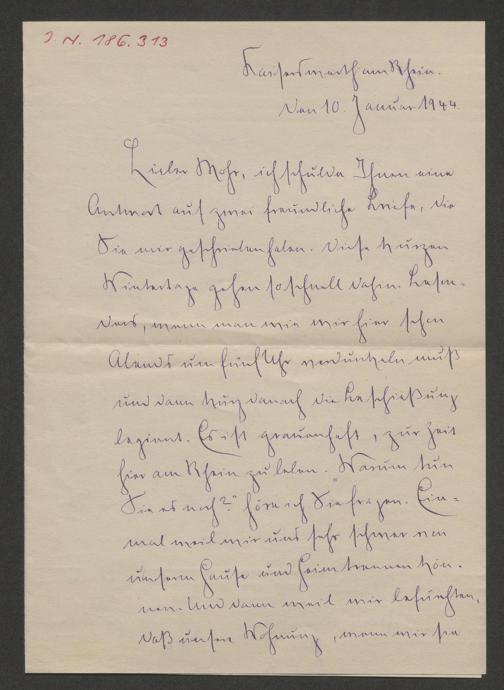 J. N. 186.313
Kaiserswerth am Rhein.
den 10. Januar 1944
Lieber Mohr, ich schulde Ihnen eine
Antwort auf zwei freundliche Briefe, die
Sie mir geschrieben haben. Diese kurzen
Wintertage gehen so schnell dahin. Beson-
ders, wenn man wie wir hier schon
Abends um fünf Uhr verdunkeln muß
und dann kurz danach die Beschießung
beginnt. Es ist grauenhaft, zur Zeit
hier am Rhein zu leben. "Warum tun
Sie es noch?" höre ich Sie fragen. Ein-
mal weil wir uns sehr schwer von
unserm Hause und Heim trennen kön-
nen. Und dann weil wir befürchten,
daß unsere Wohnung, wenn wir sie